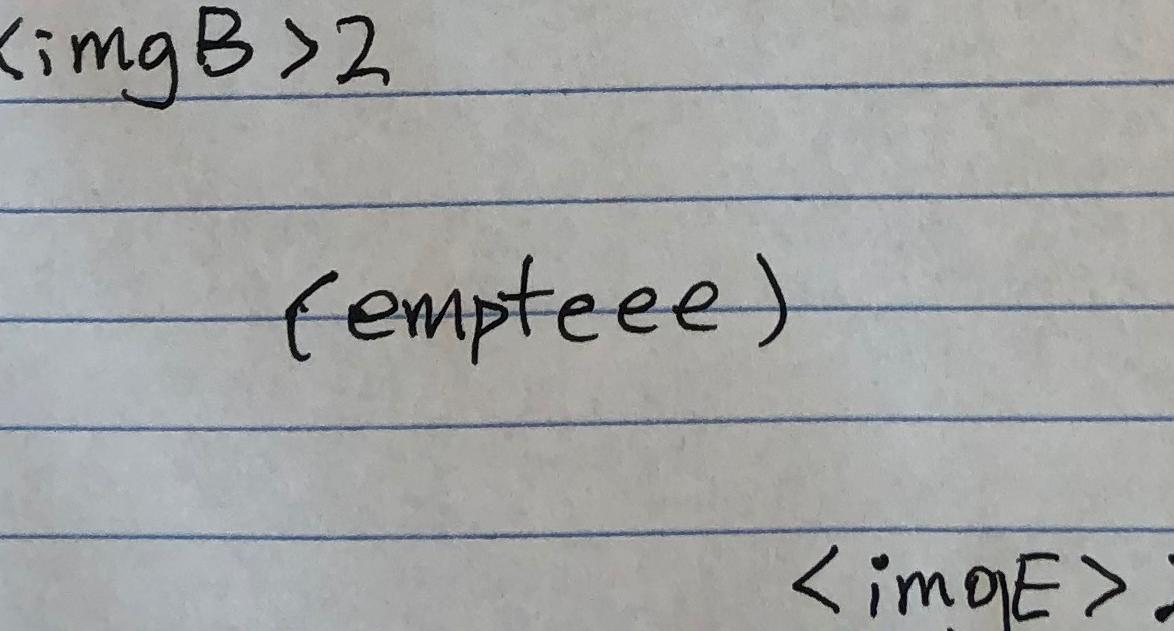 <imgB>2
(empteee)
<imgE>